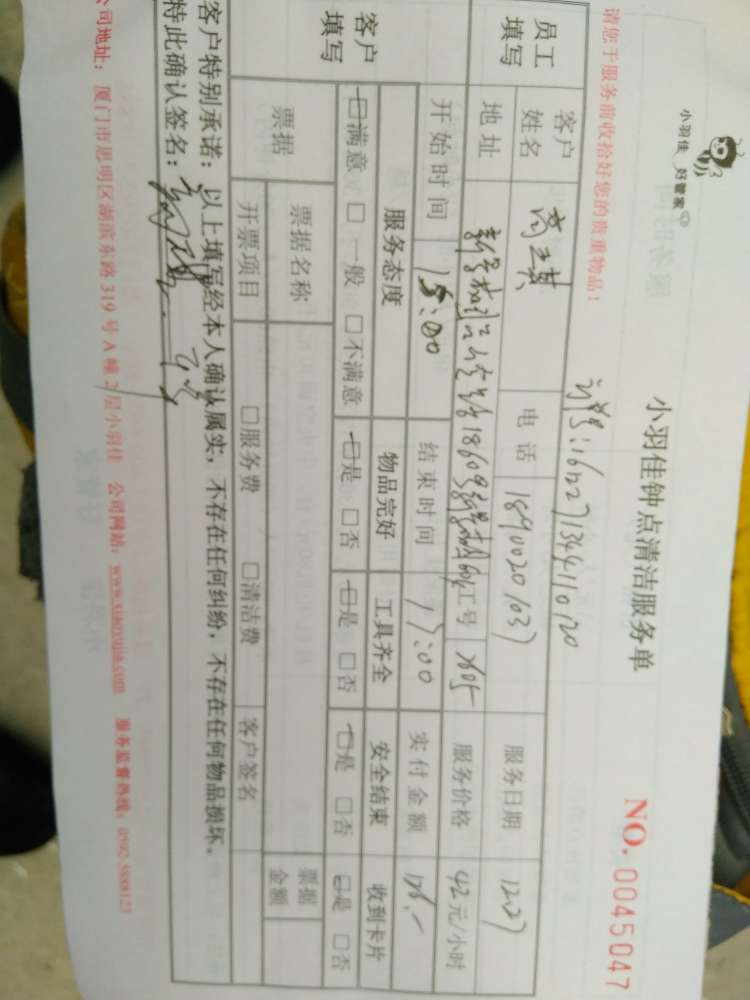 小羽佳 好管家
小羽佳钟点清洁服务单
NO. 0045047
请您于服务前收拾好您的贵重物品！
员工填写
客户姓名
电话 18900201037
服务日期 1227
地址
工号
服务价格 42元/小时
开始时间 15:00
结束时间 17:00
实付金额
客户填写
服务态度 物品完好 工具齐全 安全结束 收到卡片
☑满意 □一般 □不满意 ☑是 □否 ☑是 □否 ☑是 □否 ☑是 □否
票据
票据名称
票据金额
开票项目 □服务费 □清洁费 客户签名
客户特别承诺：以上填写经本人确认属实，不存在任何纠纷，不存在任何物品损坏。
特此确认签名：
公司地址：厦门市思明区湖滨东路 319 号 A 幢 2 层小羽佳 公司网站：www.xiaoyujia.com 服务监督热线：0592-3888123